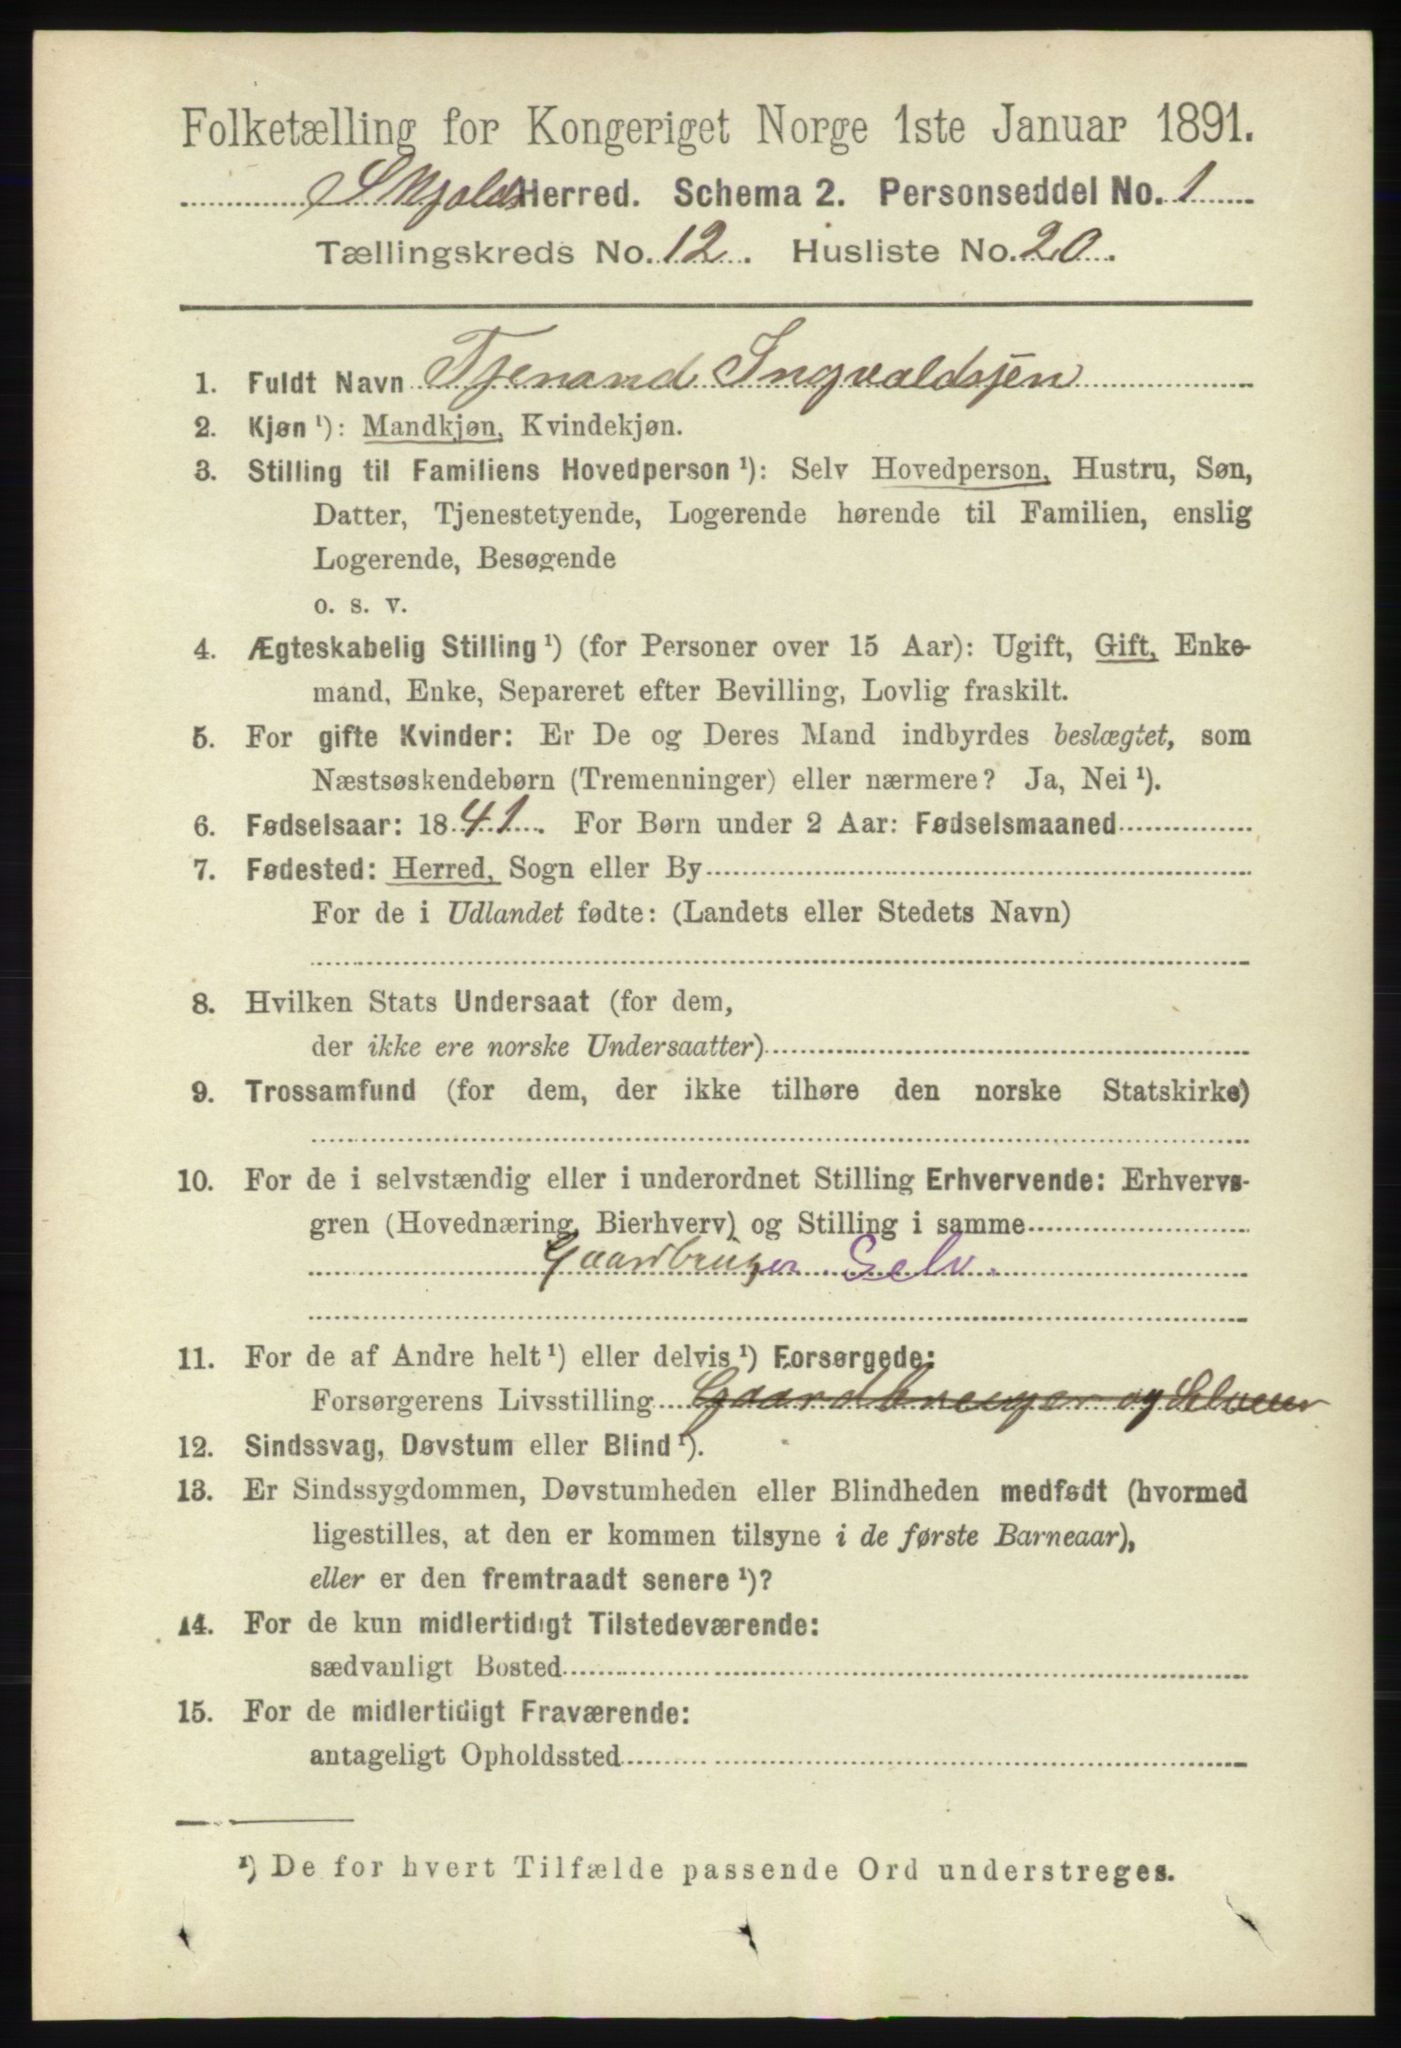 Folketælling for Kongeriget Norge 1ste Januar 1891.
Skjolds Herred. Schema 2. Personseddel No. 1
Tællingskreds No. 12. Husliste No. 20.
1. Fuldt Navn Tjerand Ingvaldsen
2. Kjøn ¹): Mandkjøn, Kvindekjøn.
3. Stilling til Familiens Hovedperson ¹): Selv Hovedperson, Hustru, Søn,
Datter, Tjenestetyende, Logerende hørende til Familien, enslig
Logerende, Besøgende
o. s. v.
4. Ægteskabelig Stilling ¹) (for Personer over 15 Aar): Ugift, Gift, Enke-
mand, Enke, Separeret efter Bevilling, Lovlig fraskilt.
5. For gifte Kvinder: Er De og Deres Mand indbyrdes beslægtet, som
Næstsøskendebørn (Tremenninger) eller nærmere? Ja, Nei ¹).
6. Fødselsaar: 1841. For Børn under 2 Aar: Fødselsmaaned
7. Fødested: Herred, Sogn eller By
For de i Udlandet fødte: (Landets eller Stedets Navn)
8. Hvilken Stats Undersaat (for dem,
der ikke ere norske Undersaatter)
9. Trossamfund (for dem, der ikke tilhøre den norske Statskirke)
10. For de i selvstændig eller i underordnet Stilling Erhvervende: Erhvervs-
gren (Hovednæring, Bierhverv) og Stilling i samme
Gaardbruger Selv.
11. For de af Andre helt ¹) eller delvis ¹) Forsørgede:
Forsørgerens Livsstilling Gaardbruger og
12. Sindssvag, Døvstum eller Blind ¹).
13. Er Sindssygdommen, Døvstumheden eller Blindheden medfødt (hvormed
ligestilles, at den er kommen tilsyne i de første Barneaar),
eller er den fremtraadt senere ¹)?
14. For de kun midlertidigt Tilstedeværende:
sædvanligt Bosted
15. For de midlertidigt Fraværende:
antageligt Opholdssted
¹) De for hvert Tilfælde passende Ord understreges.